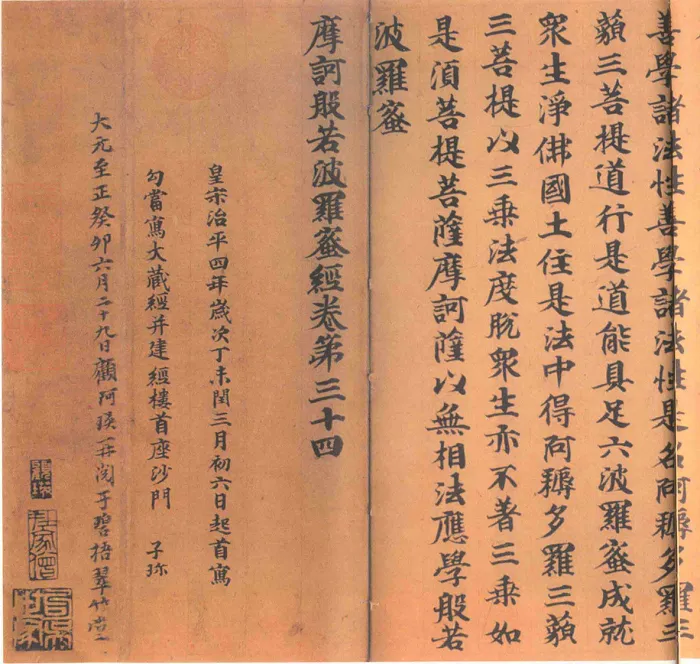 善學諸法性善學諸法性是名阿耨多羅三
藐三菩提道行是道能具足六波羅蜜成就
衆生淨佛國土住是法中得阿耨多羅三藐
三菩提以三乗法度脫衆生亦不著三乗如
是須菩提菩薩摩訶薩以無相法應學般若
波羅蜜
摩訶般若波羅蜜經卷第三十四
皇宋治平四年歲次丁未閏三月初六日起首寫
勾當寫大藏經并建經樓首座沙門 子珎
大元至正癸卯六月二十九日顧阿瑛一册閱于碧梧翠竹